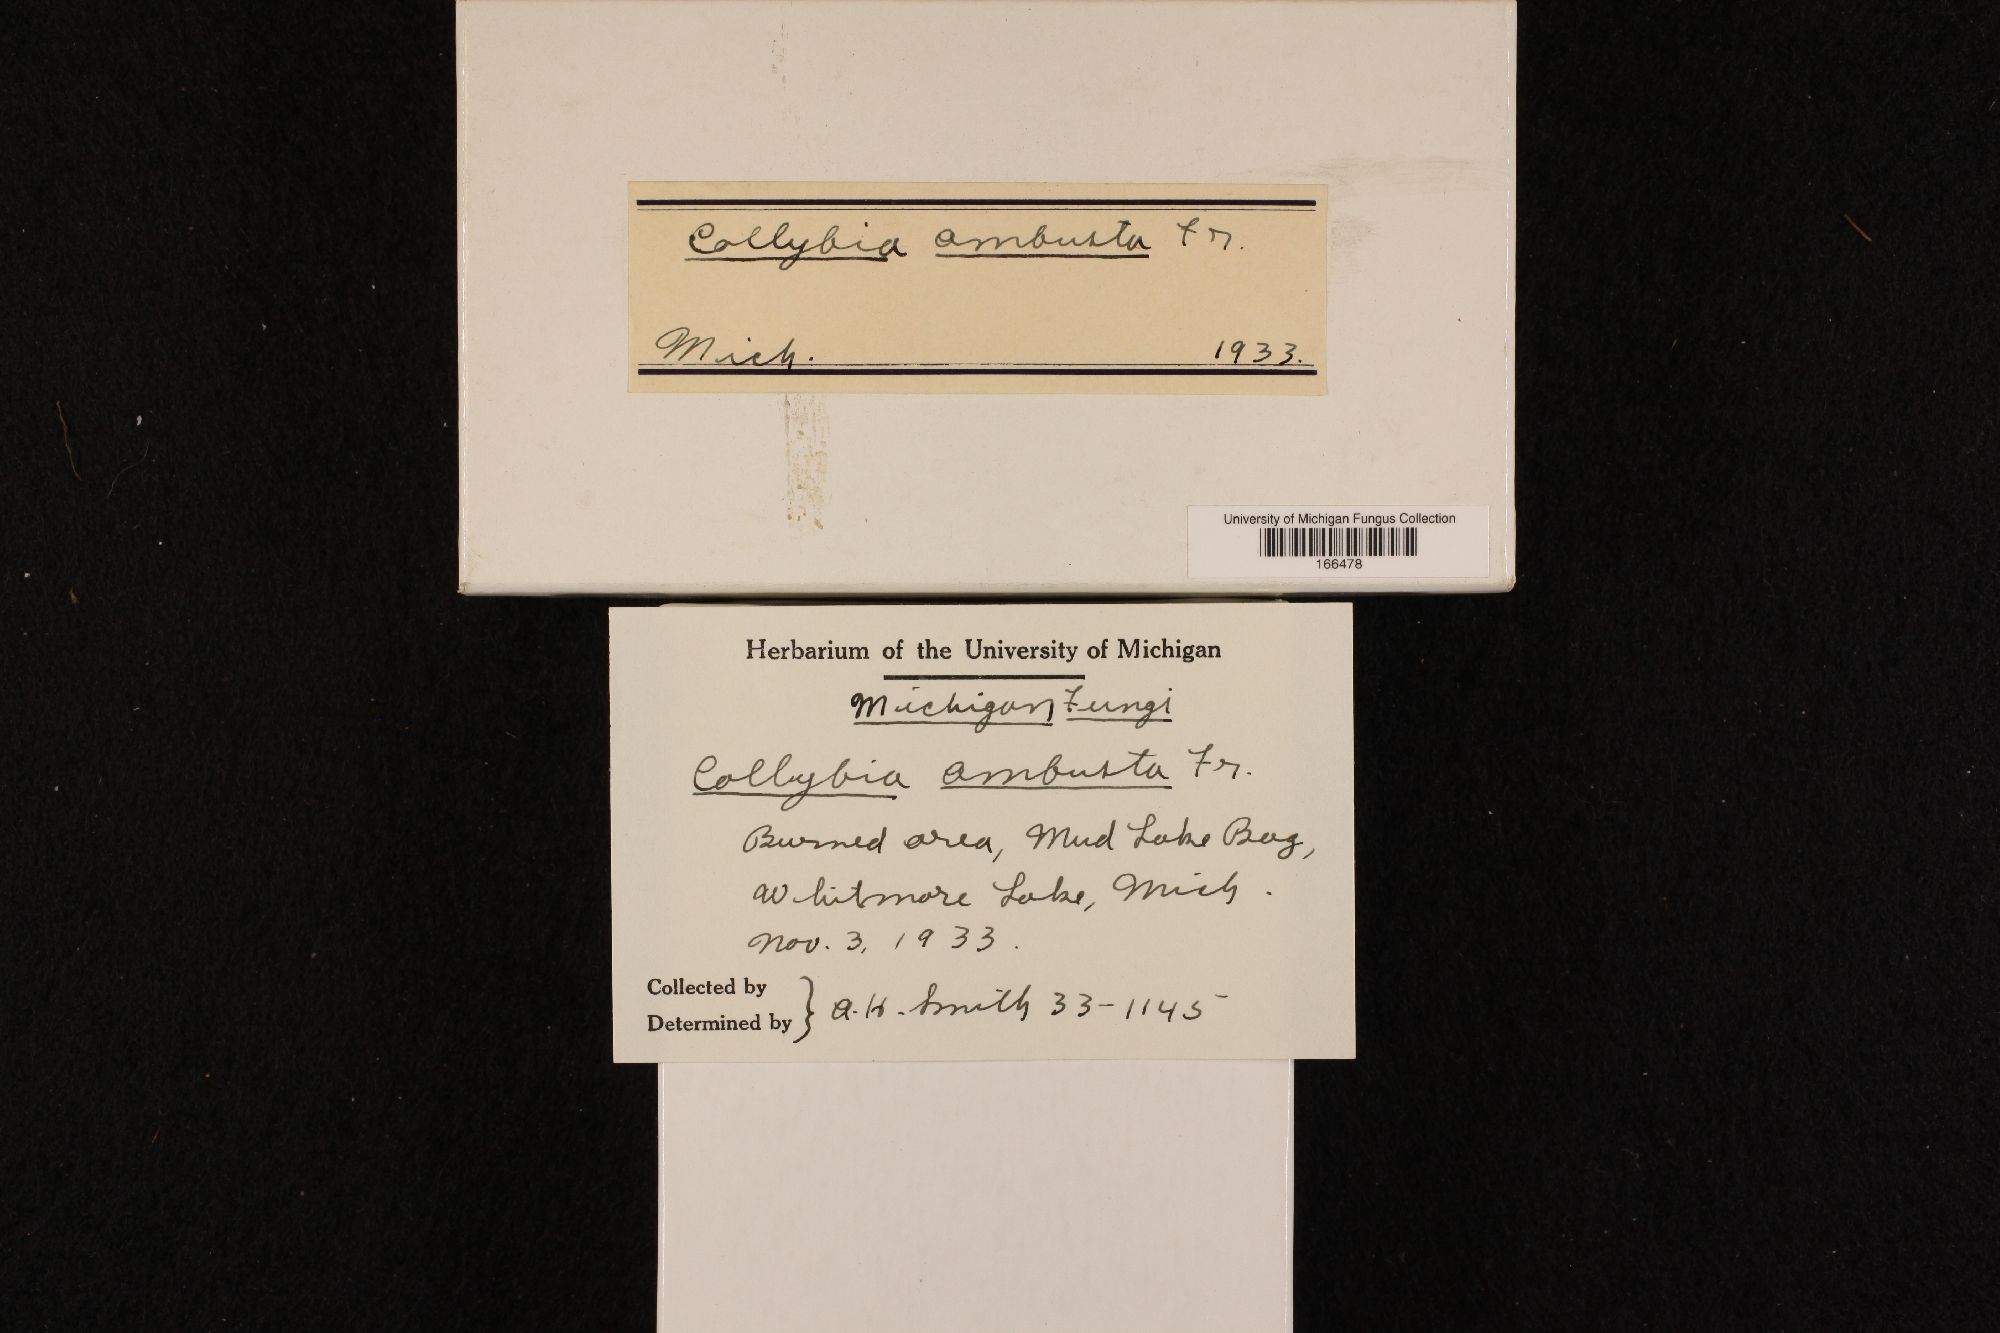 Collybia ambusta Fr.
Mich. 1933.
University of Michigan Fungus Collection
166478
Herbarium of the University of Michigan
Michigan Fungi
Collybia ambusta Fr.
Burned area, Mud Lake Bog,
Whitmore Lake, Mich.
Nov. 3, 1933.
Collected by
Determined by } A.H. Smith 33-1145